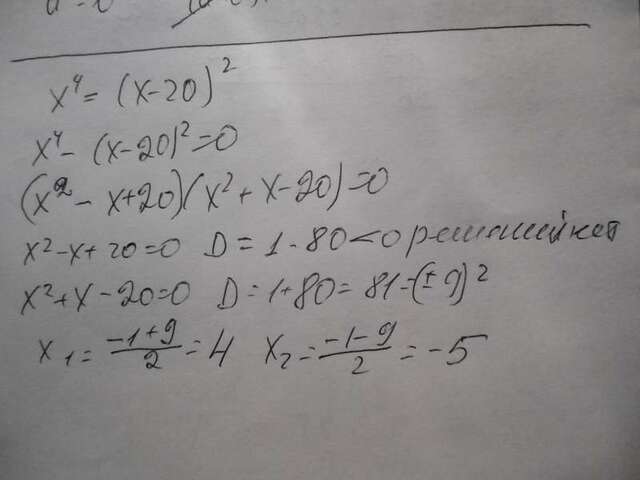 x⁴ = (x-20)²
x⁴ - (x-20)² = 0
(x² - x+20)(x² + x-20) = 0
x² - x + 20 = 0 D = 1 - 80 < 0 решений нет
x² + x - 20 = 0 D = 1 + 80 = 81 = (± 9)²
x₁ = \frac{-1+9}{2} = 4 x₂ = \frac{-1-9}{2} = -5